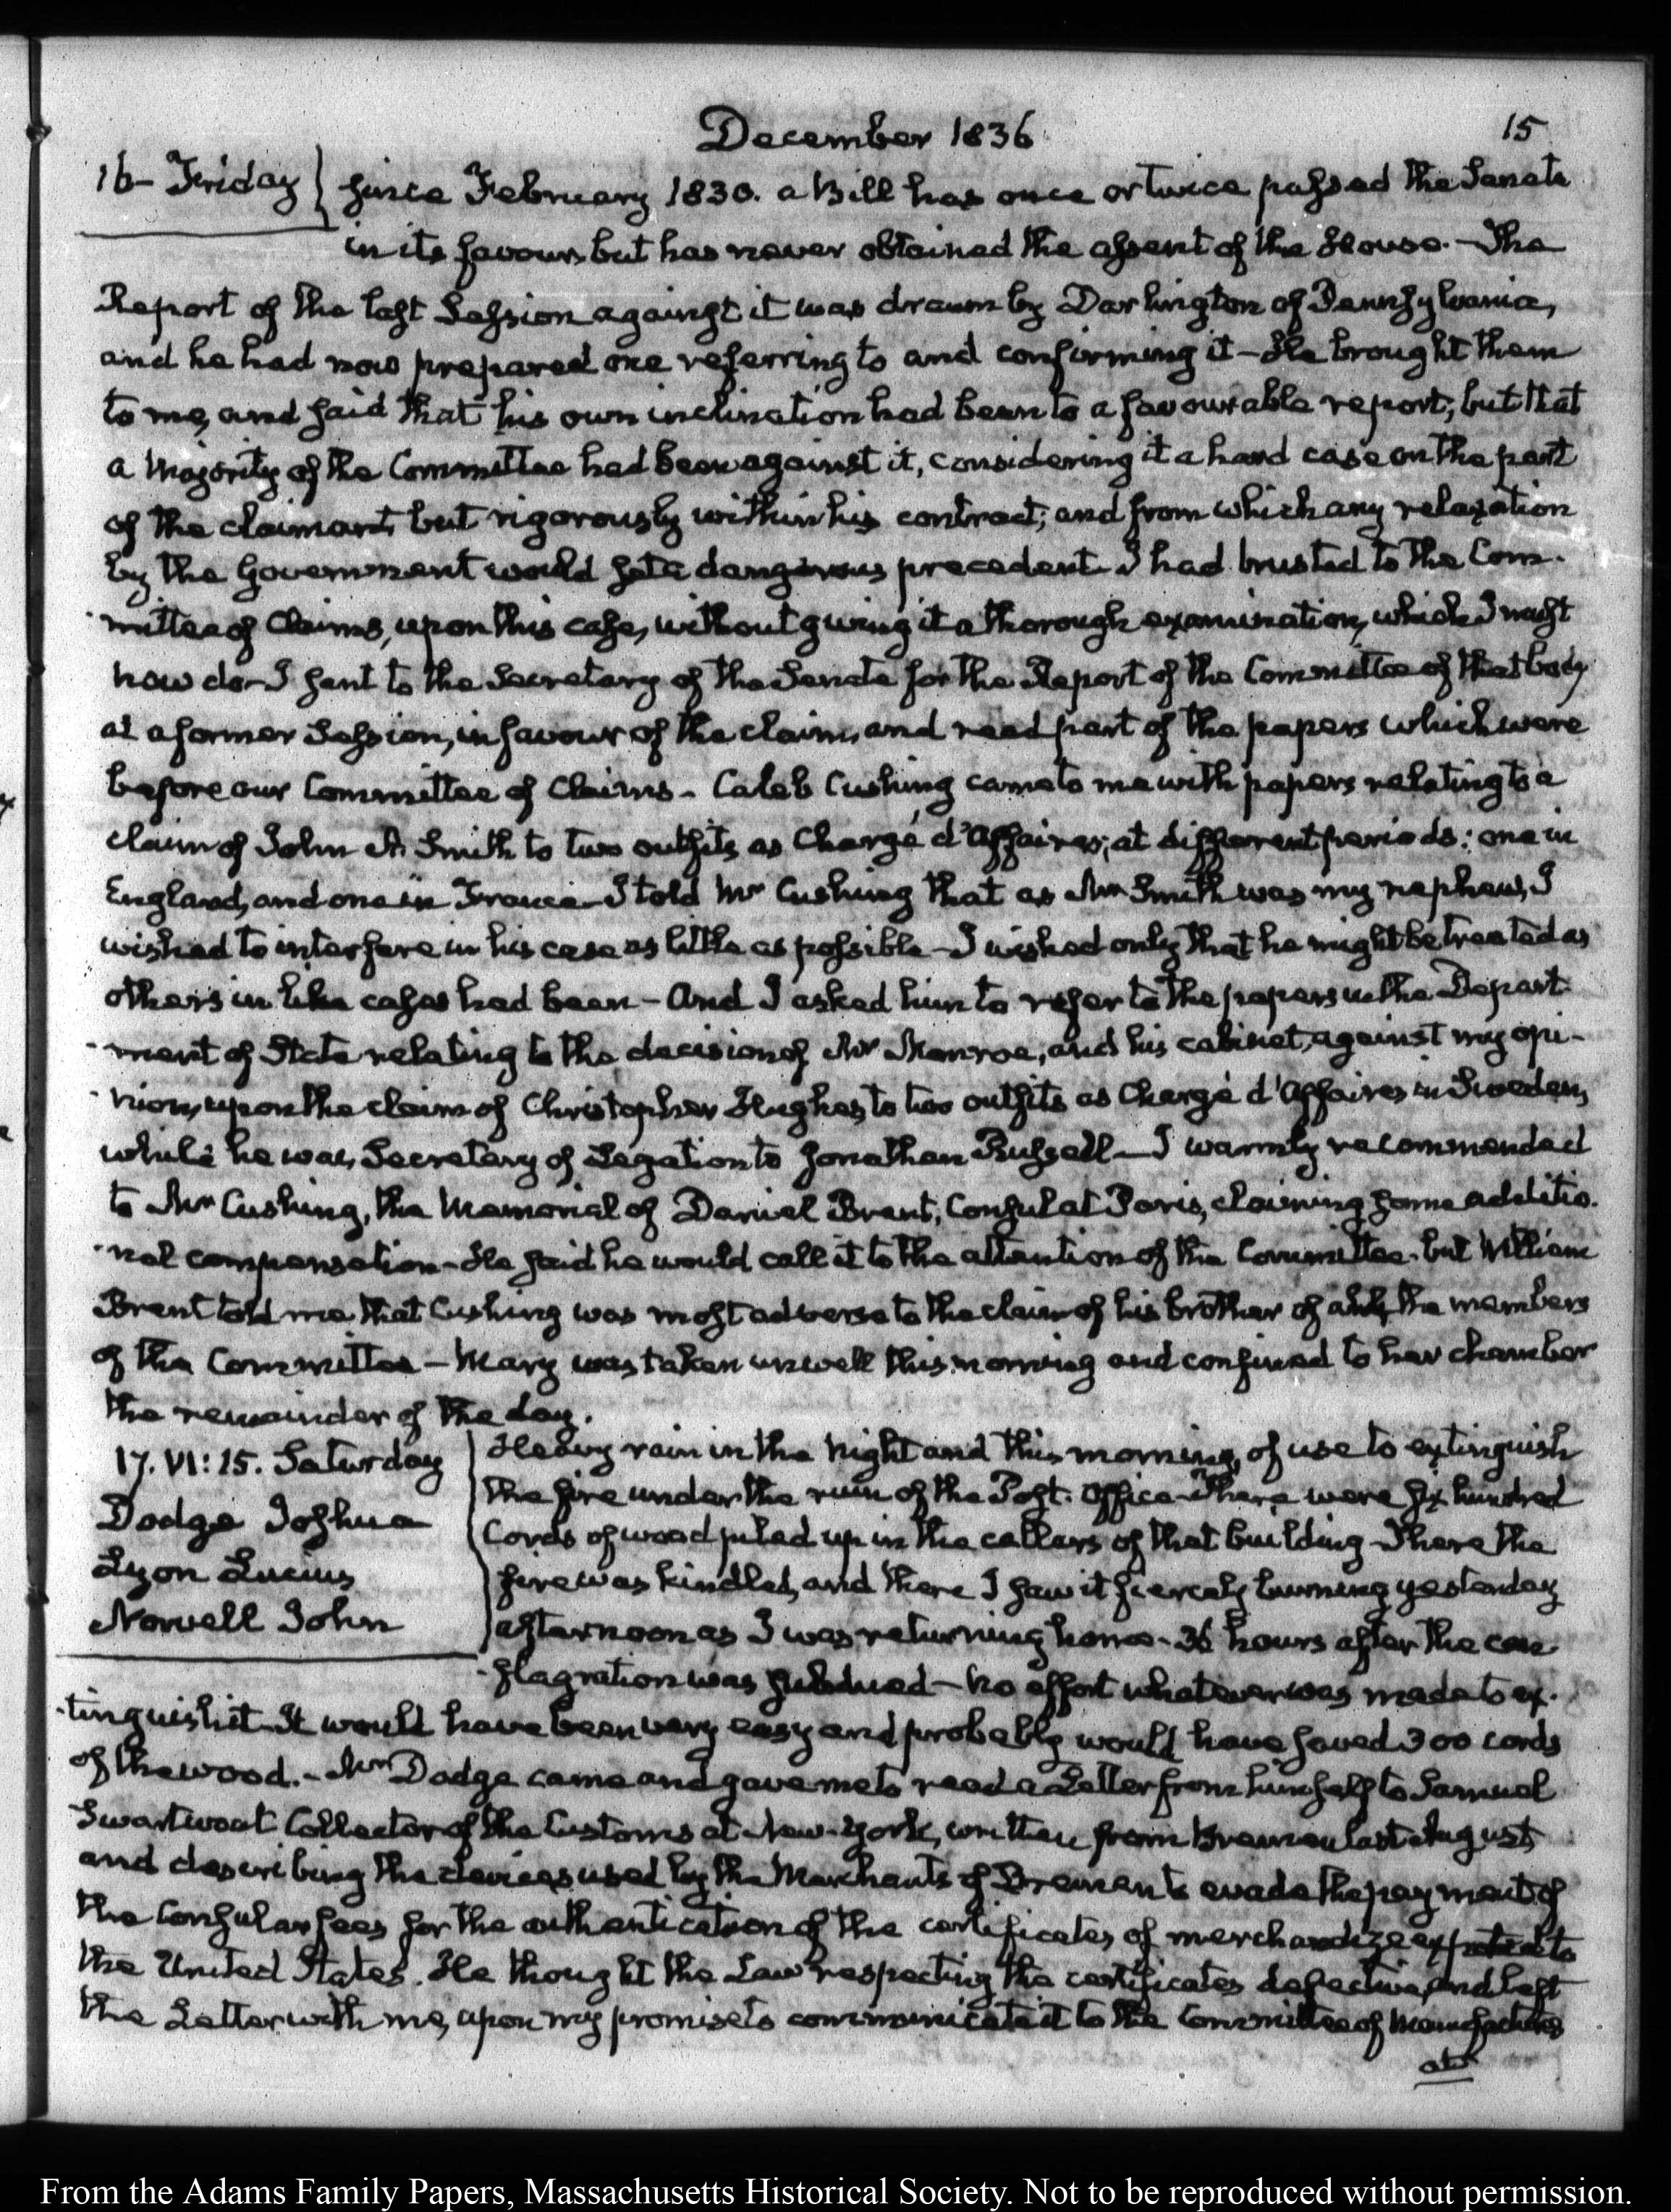 December 1836
15
16 - Friday
since February 1830. a Bill has once or twice passed the Senate
in its favour, but has never obtained the assent of the House. - The
Report of the last Session against it was drawn by Darlington of Pennsylvania,
and he had now prepared one referring to and confirming it - He brought them
to me, and said that his own inclination had been to a favourable report; but that
a Majority of the Committee had been against it, considering it a hard case on the part
of the claimant, but rigorously within his contract; and from which any relaxation
by the Government would set a dangerous precedent. I had trusted to the Com-
-mittee of Claims, upon this case, without giving it a thorough examination, which I must
now do - I sent to the Secretary of the Senate for the Report of the Committee of that body
at a former Session, in favour of the claim, and read part of the papers which were
before our Committee of Claims - Caleb Cushing came to me with papers relating to a
claim of John A. Smith to two outfits as Chargé d'Affaires, at different periods: one in
England, and one in France - I told Mr Cushing that as Mr Smith was my nephew, I
wished to interfere in his case as little as possible - I wished only that he might be treated as
others in like cases had been - And I asked him to refer to the papers in the Depart
-ment of State relating to the decision of Mr Monroe, and his cabinet, against my opi-
-nion, upon the claim of Christopher Hughes to two outfits as Chargé d'Affaires in Sweden,
while he was Secretary of Legation to Jonathan Russell - I warmly recommended
to Mr Cushing, the Memorial of Daniel Brent, Consul at Paris, claiming some additio-
-nal compensation - He said he would call it to the attention of the Committee - but William
Brent told me that Cushing was most adverse to the claim of his brother of all the members
of the Committee - Mary was taken unwell this morning and confined to her chamber
the remainder of the day.
17. VI: 15. Saturday
Dodge Joshua
Lyon Lucius
Norvell John
Heavy rain in the Night and this morning, of use to extinguish
the fire under the ruin of the Post-Office - There were six hundred
Cords of wood piled up in the cellars of that building - There the
fire was kindled, and there I saw it fiercely burning yesterday
afternoon as I was returning home - 36 hours after the con
-flagration was subdued - No effort whatever was made to ex-
-tinguish it - It would have been very easy and probably would have saved 300 cords
of the wood. - Mr Dodge came and gave me to read a Letter from himself to Samuel
Swartwout Collector of the Customs at New-York, written from Bremen last August,
and describing the devices used by the Merchants of Bremen to evade the payment of
the Consular fees for the authentication of the certificates of merchandize exported to
the United States. He thought the Law respecting the certificates defective, and left
the Letter with me, upon my promise to communicate it to the Committee of Manufactures
at
From the Adams Family Papers, Massachusetts Historical Society. Not to be reproduced without permission.